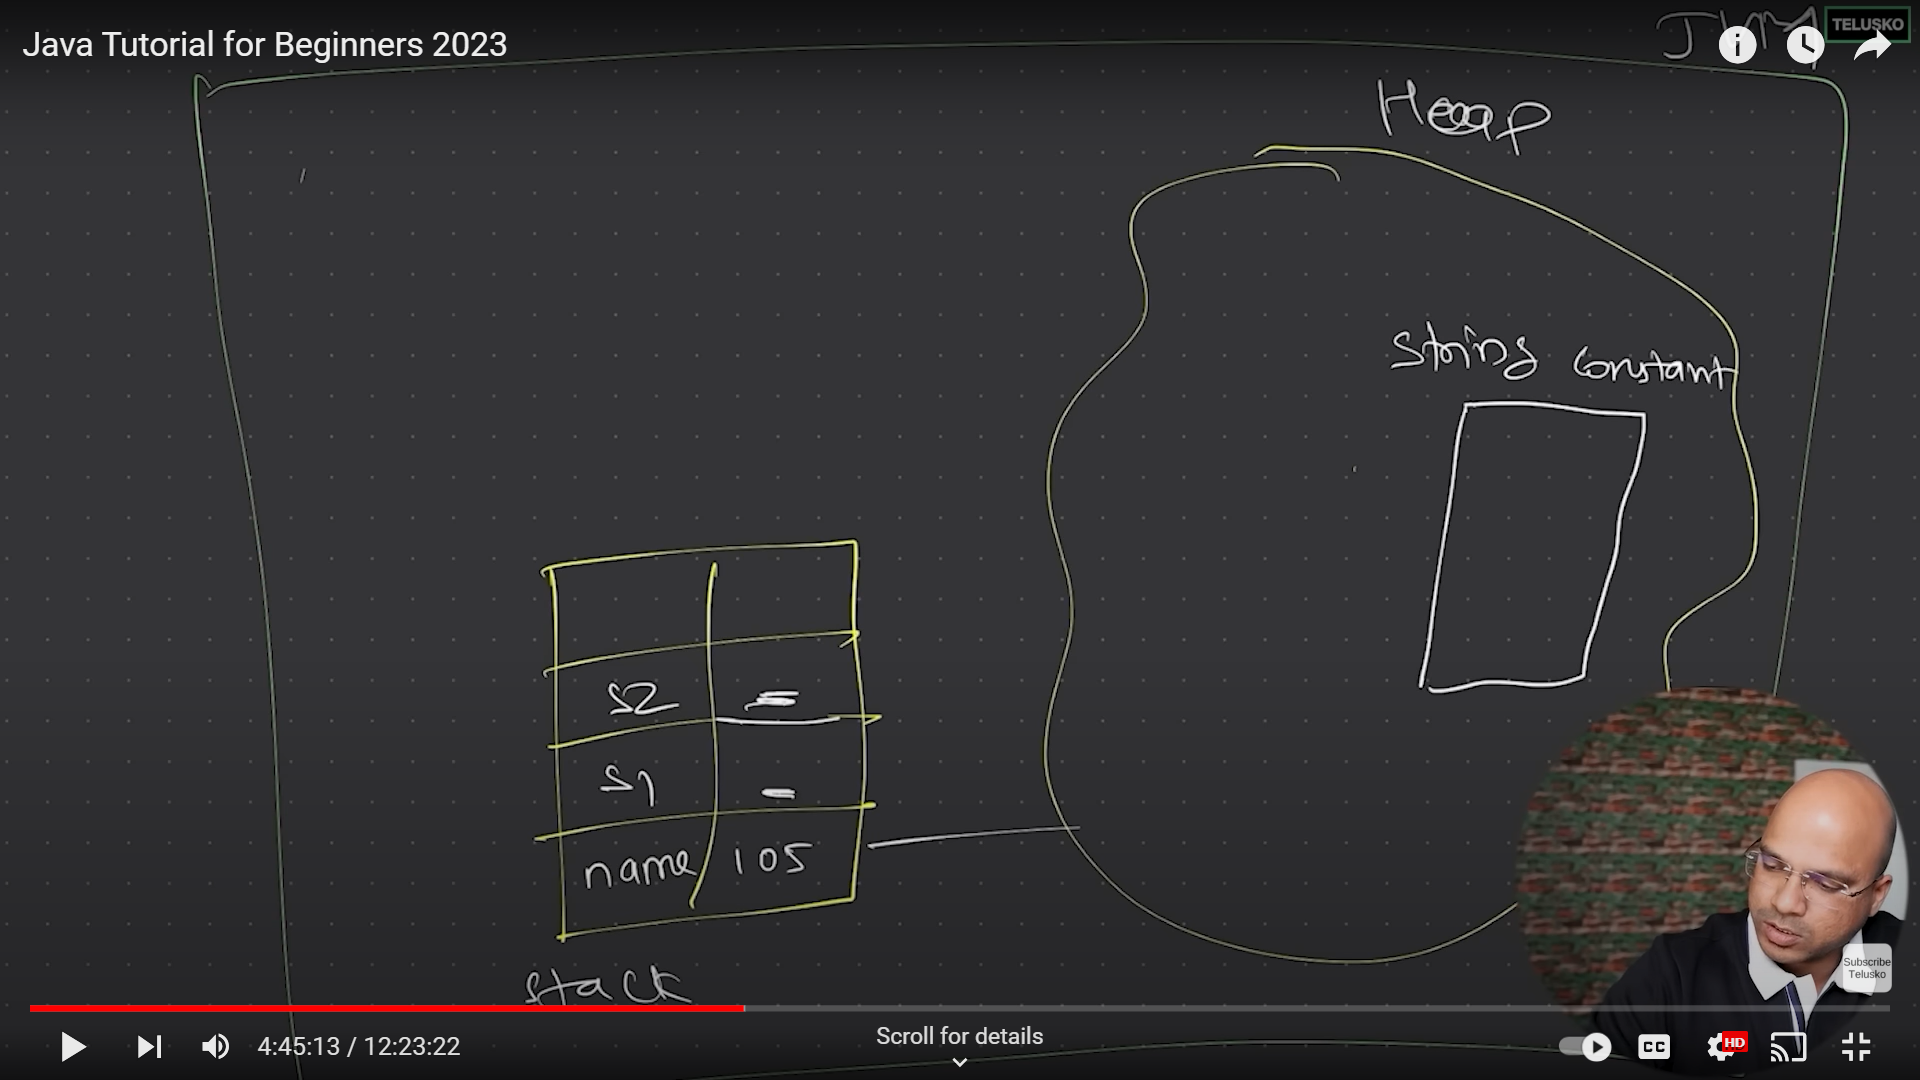 Java Tutorial for Beginners 2023
JVM
TELUSKO
Heap
String constant
S2
S1
name 105
stack
Subscribe
Telusko
4:45:13 / 12:23:22
Scroll for details
CC
HD